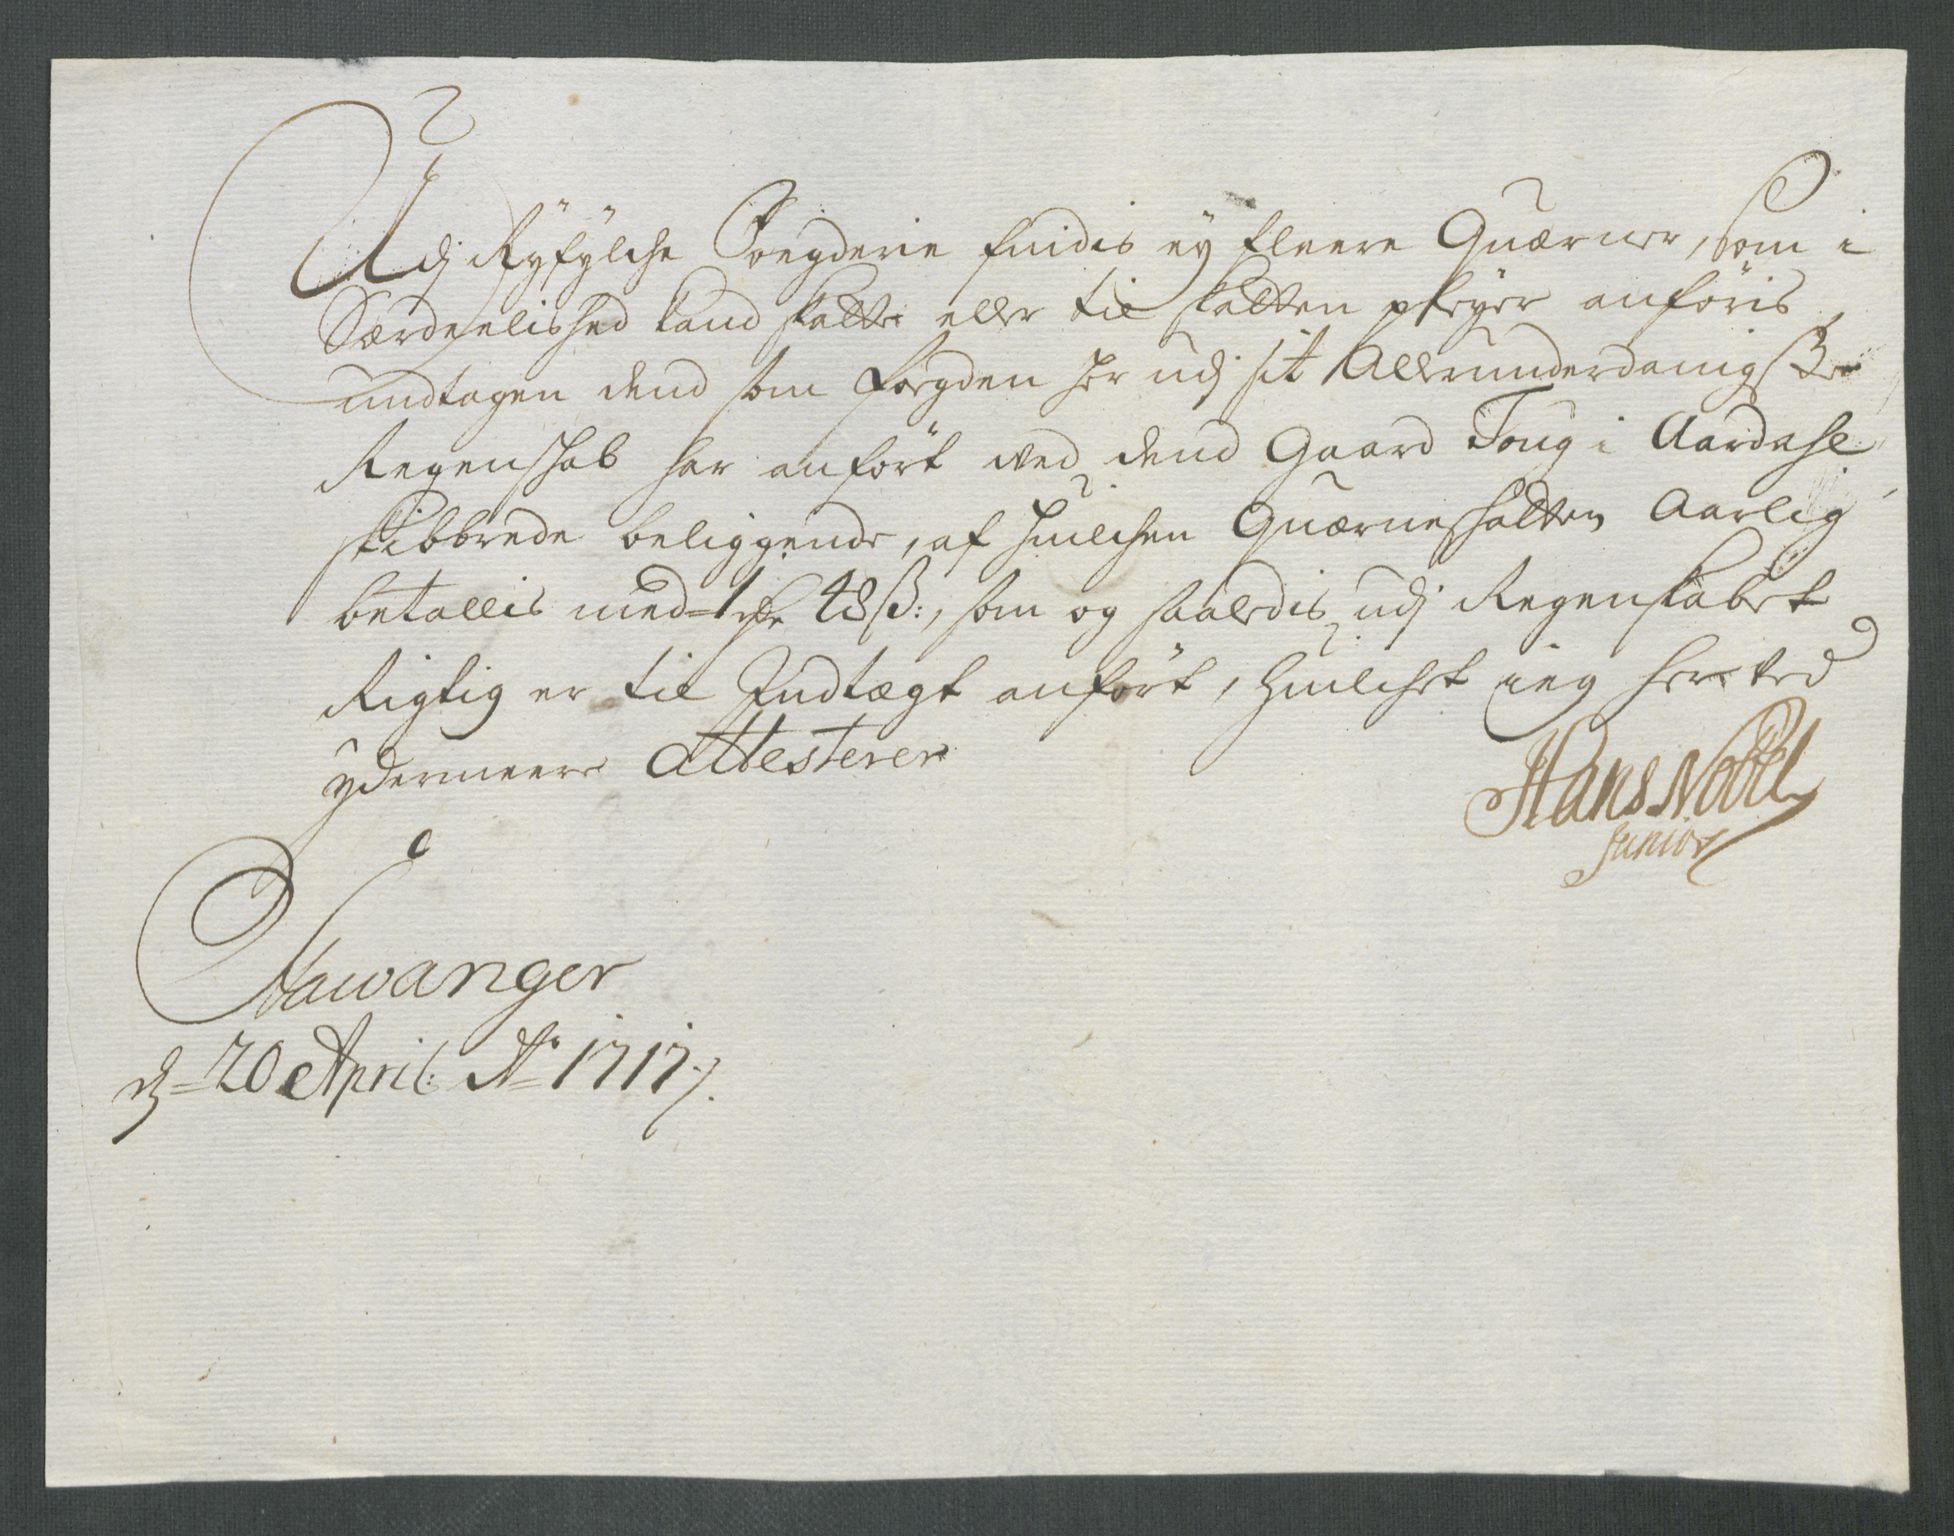 Udj Ryfylche Foegderie findis ey fleere Quærner, som i
Særdeelished kand skatte eller til skatten pleyer anföris
undtagen dend som Fogden her udj sit Allerunderdanigste
Regenschab har anfört ved dend Gaard Toug i Aardahl
skibbrede beliggende, af huilchen Quærneschatten Aarlig
betallis med 1 rdr 48 ß:, som og saaledis udj Regenskabet
Rigtig er til Indtægt anfört, huilchet ieg herved
ydermeere Attesterer
Hans Nobel
Junior
Stawanger
d 20 April: Ao 1717.